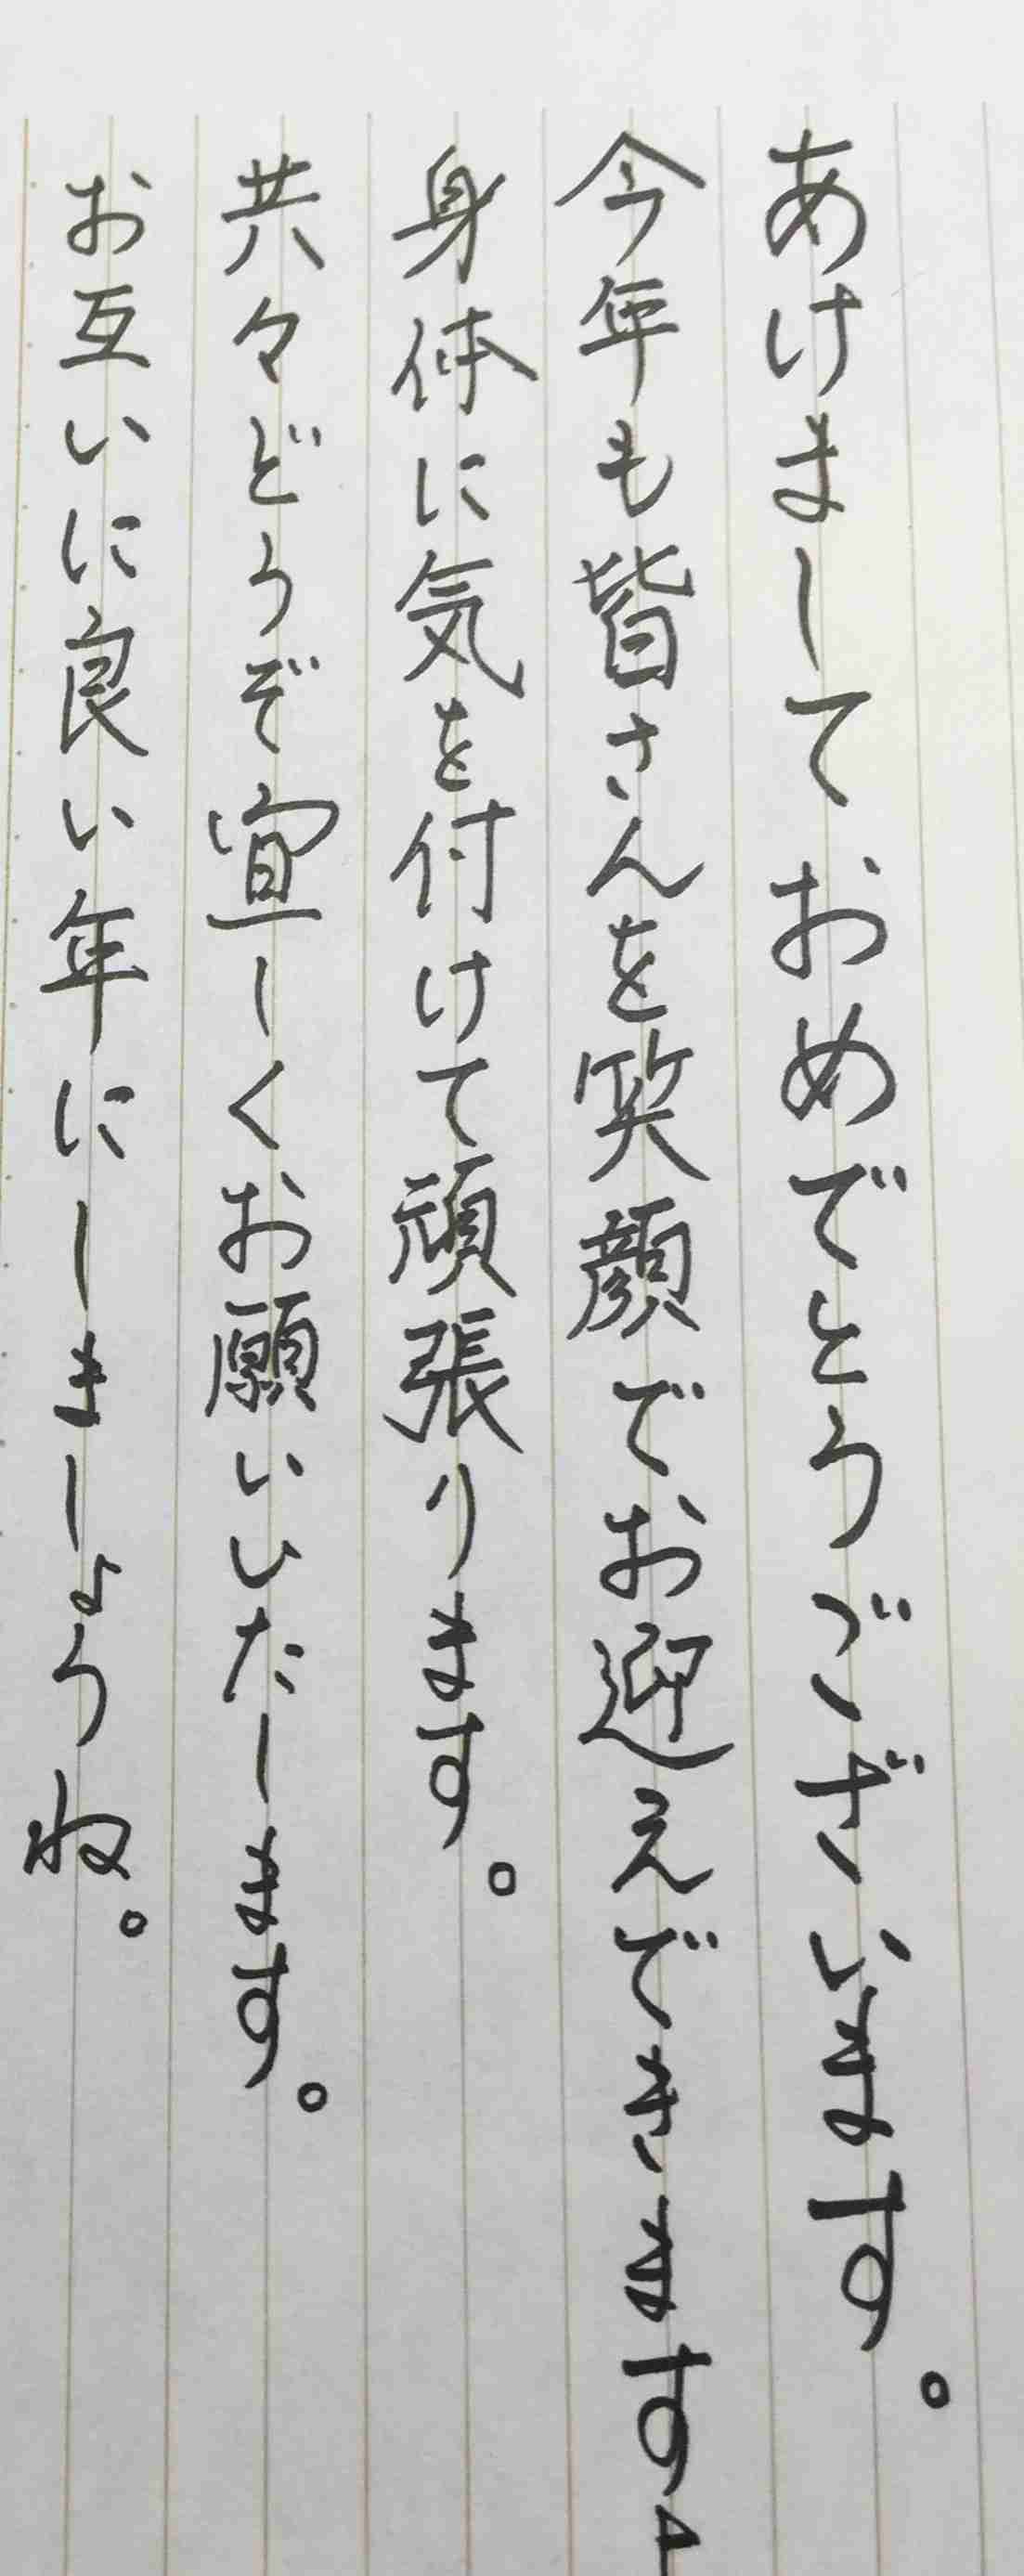 あけましておめでとうございます。
今年も皆さんを笑顔でお迎えできます
身体に気を付けて頑張ります。
共々どうぞ宜しくお願いいたします。
お互いに良い年にしましょうね。